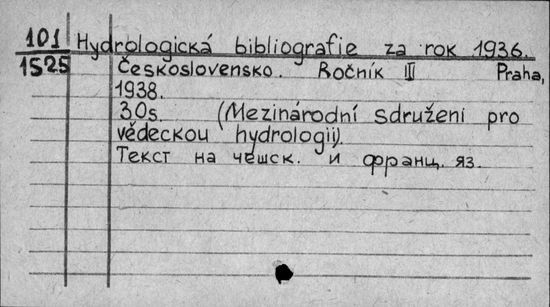 101 Hydrologická bibliografie za rok 1936.
1525 Československo. Ročník III Praha,
1938.
30s. (Mezinárodní sdruženi pro
vědeckou hydrologii).
Текст на чешск. и франц. яз.